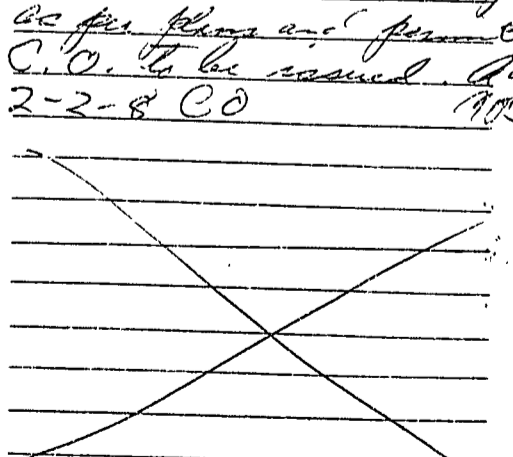 as per plans and permit
C.O. to be issued.
2-2-8 CO